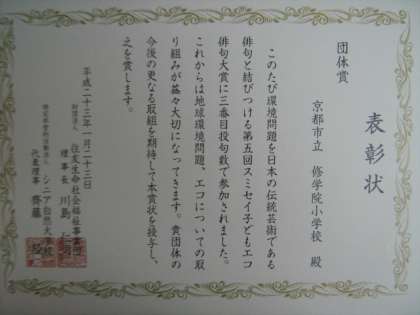 表彰状
団体賞
京都市立 修学院小学校 殿
このたび環境問題を日本の伝統芸術である
俳句と結びつける第五回スミセイ子どもエコ
俳句大賞に三番目投句数で参加されました。
これからは地球環境問題、エコについての取
り組みが益々大切になってきます。貴団体の
今後の更なる取組を期待して本賞状を授与し、
之を賞します。
平成二十三年一月二十三日
財団法人 住友生命社会福祉事業団
理事長 川島
特定非営利活動法人 シニア自然大学校
代表理事 齊藤